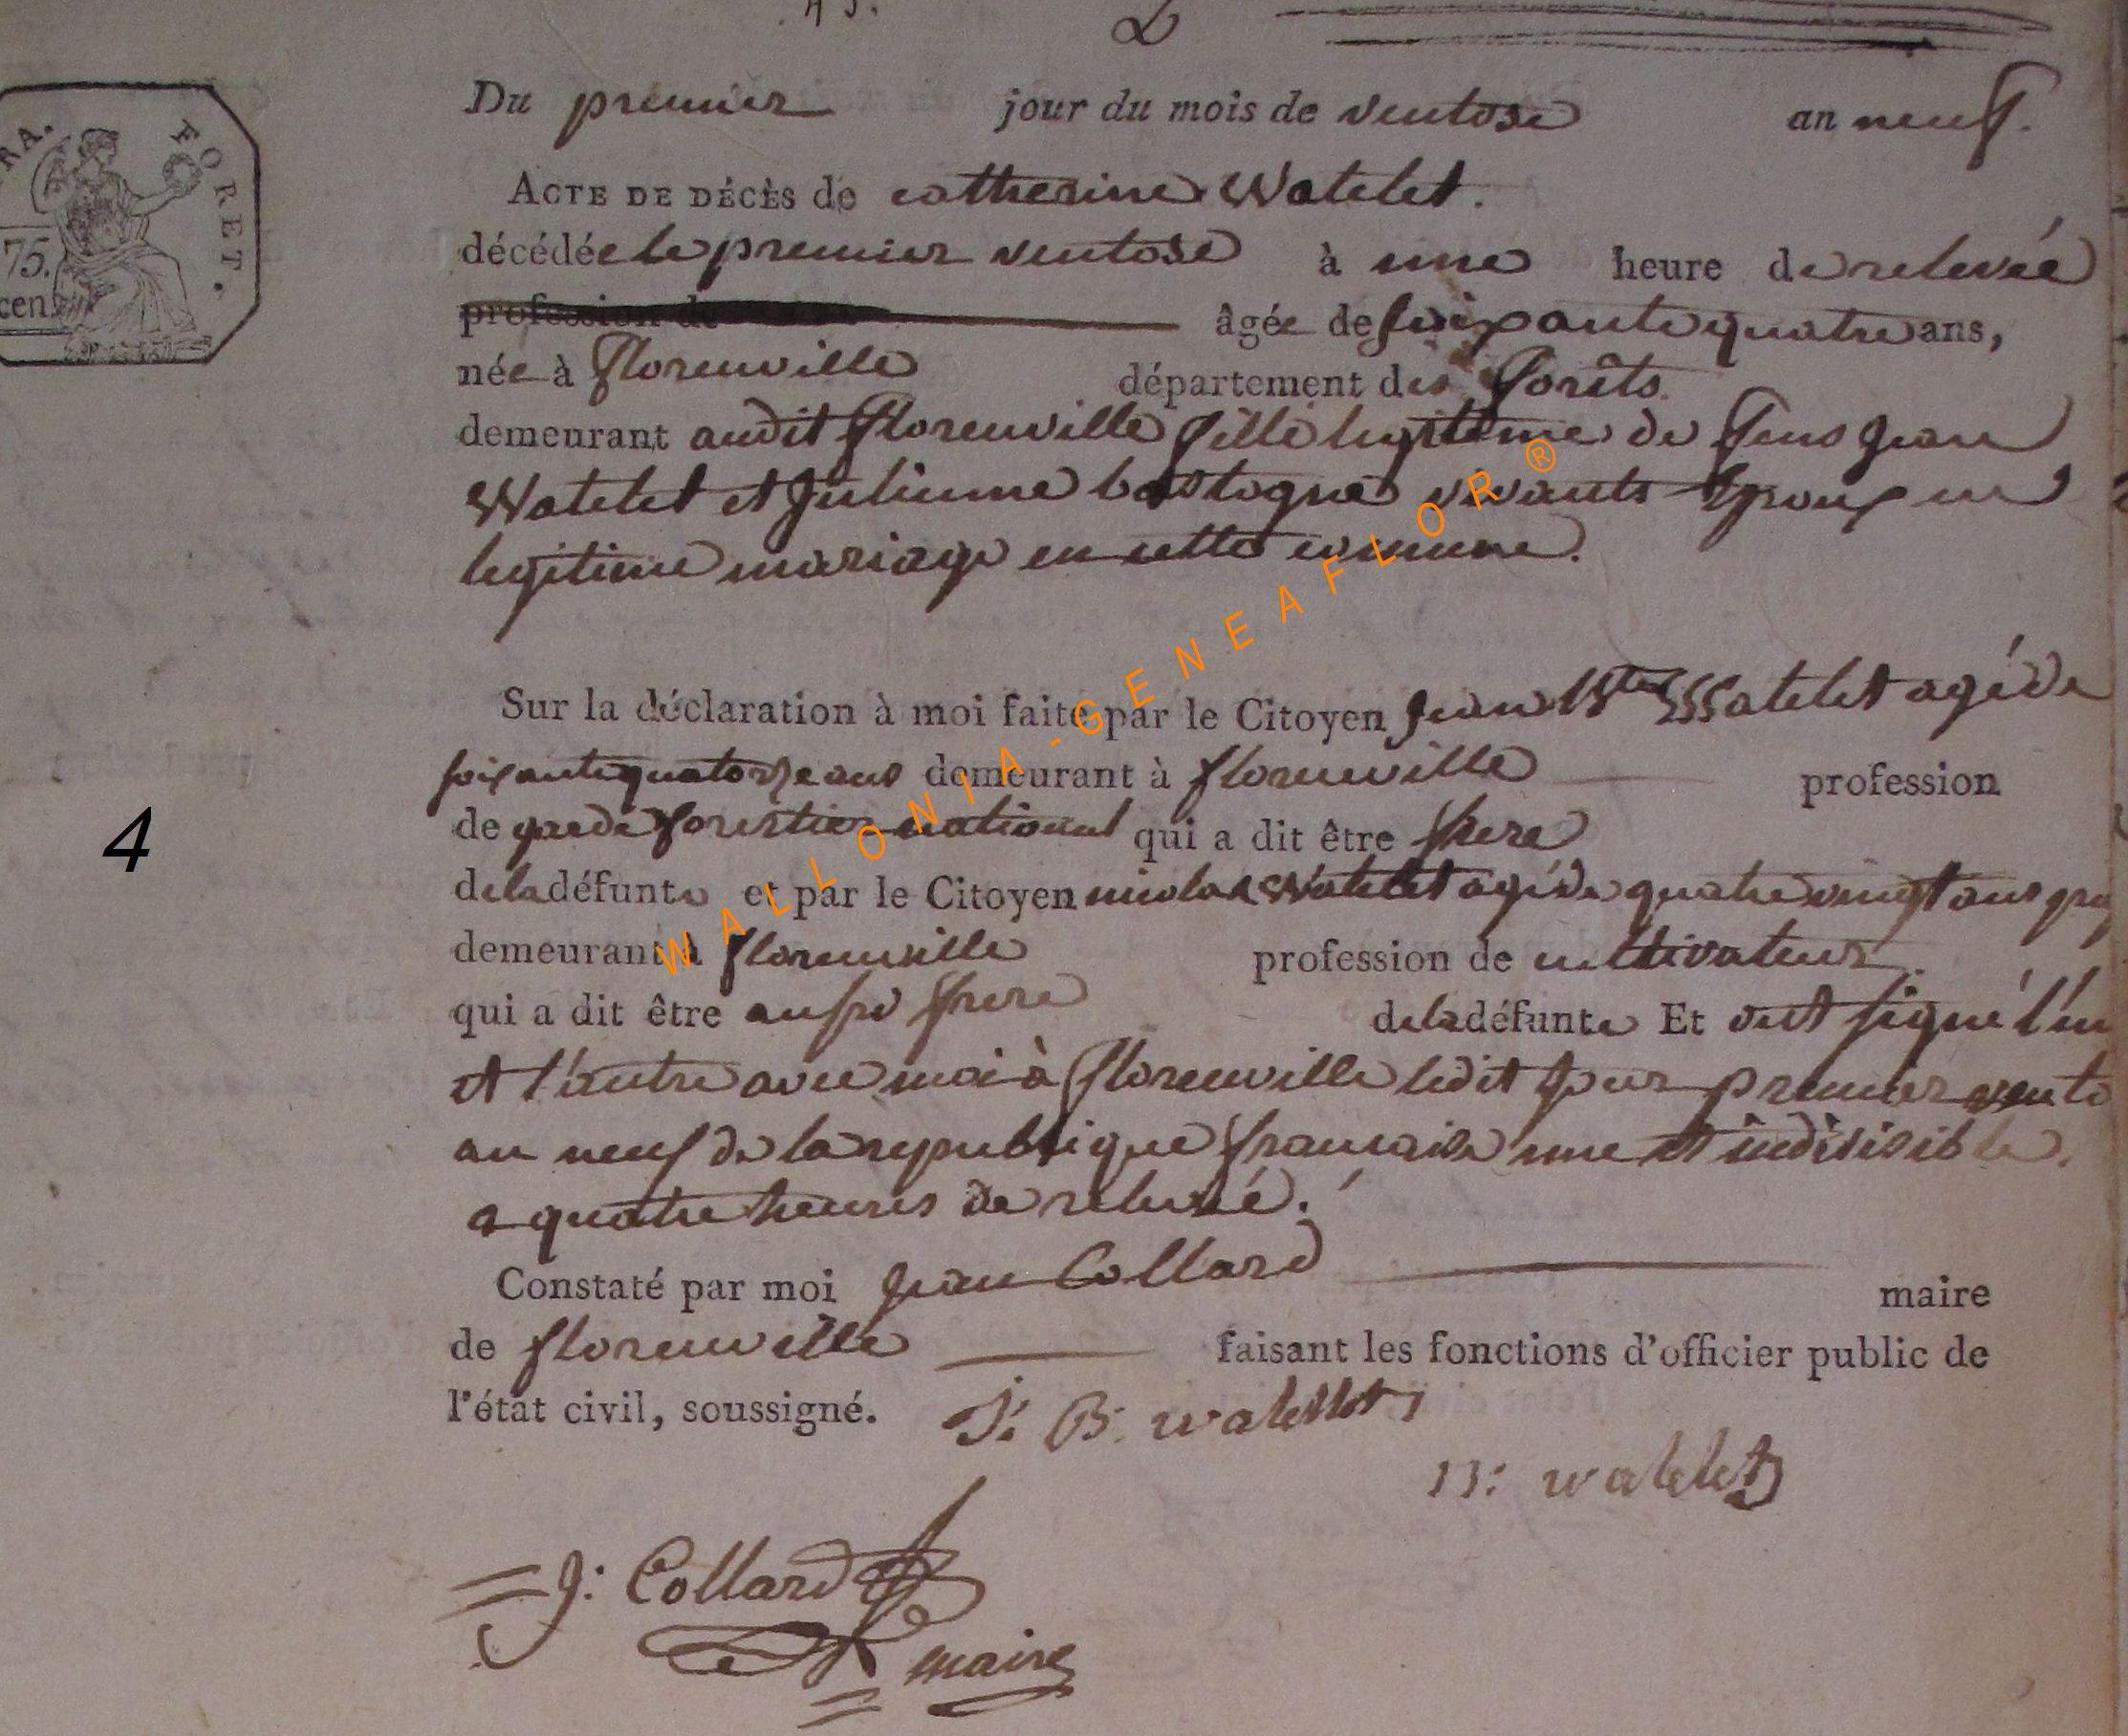 Du premier jour du mois de ventose an neuf.
RA. FORET.
75.
cen
ACTE DE DÉCÈS de catherine Watelet.
décédée le premier ventose à une heure de relevée
profession de âgée de soixante quatre ans,
née à florenville département des forêts.
demeurant audit florenville fille legitime de feus jean
Watelet et julienne bastogne vivants Epoux en
legitime mariage en cette commune.
Sur la déclaration à moi faite par le Citoyen jean Bte Watelet agé de
soixante quatorze ans demeurant à florenville profession
de garde forestier national qui a dit être frere
4
de la défunte et par le Citoyen nicolas Watelet agé de quatre vingt ans
demeurant à florenville profession de cultivateur.
qui a dit être aussi frere de la défunte Et ont signé l'un
et l'autre avec moi à florenville ledit jour premier vento
an neuf de la republique francaise une et indivisible.
a quatre heures de relevée.
Constaté par moi jean Collard maire
de florenville faisant les fonctions d'officier public de
l'état civil, soussigné. J: B: watelet
N: watelet
J: Collard
maire
WALLONIA-GENEAFLOR®